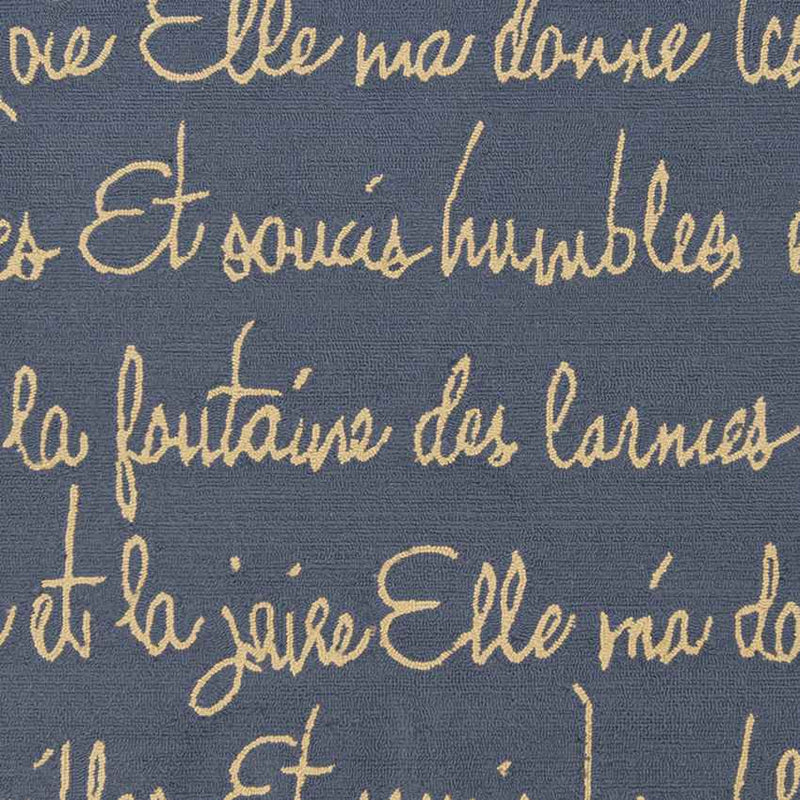 oie Elle ma donne
es Et soucis humbles,
la fontaine des larmes
et la joire Elle m'a do
les Et